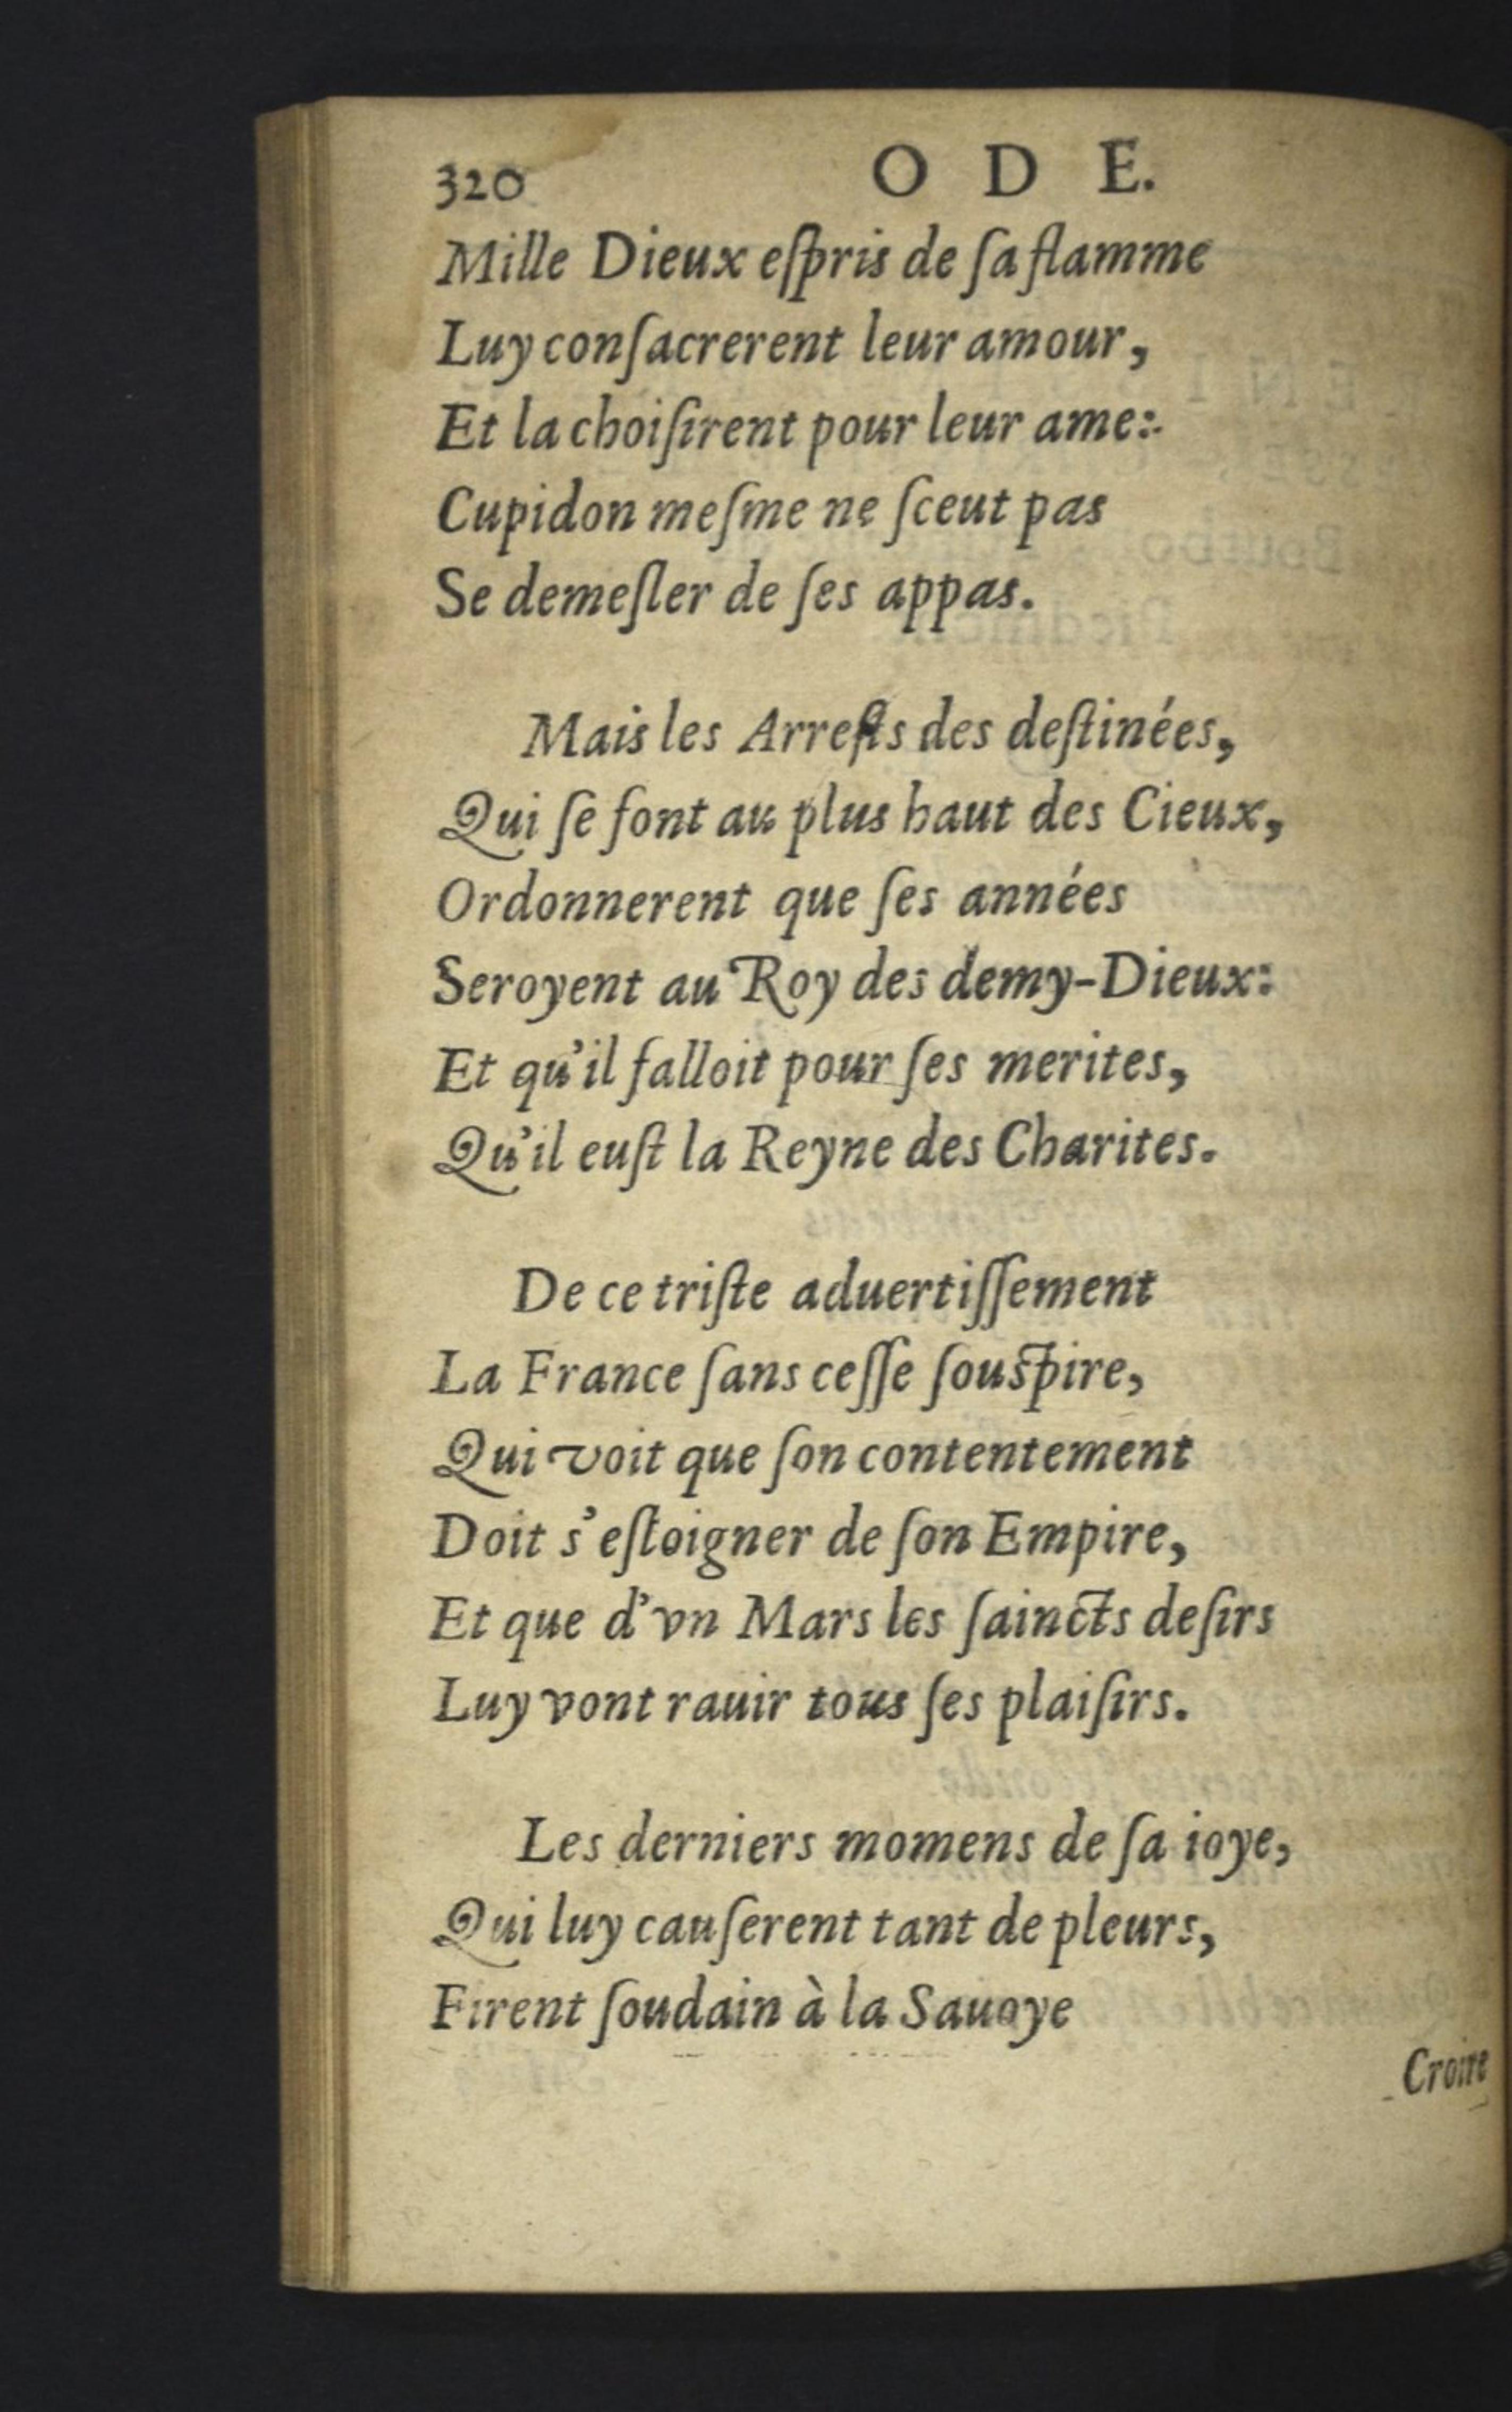 320 ODE.
Mille Dieux eſpris de ſa flamme
Luy conſacrerent leur amour,
Et la choiſirent pour leur ame:
Cupidon meſme ne ſceut pas
Se demeſler de ſes appas.
Mais les Arreſts des deſtinées,
Qui ſe font au plus haut des Cieux,
Ordonnerent que ſes années
Seroyent au Roy des demy-Dieux:
Et qu'il falloit pour ſes merites,
Qu'il euſt la Reyne des Charites.
De ce triſte aduertiſſement
La France ſans ceſſe souſpire,
Qui voit que ſon contentement
Doit s'eſloigner de ſon Empire,
Et que d'vn Mars les ſaincts deſirs
Luy vont rauir tous ſes plaiſirs.
Les derniers momens de ſa ioye,
Qui luy cauſerent tant de pleurs,
Firent ſoudain à la Sauoye
Croire